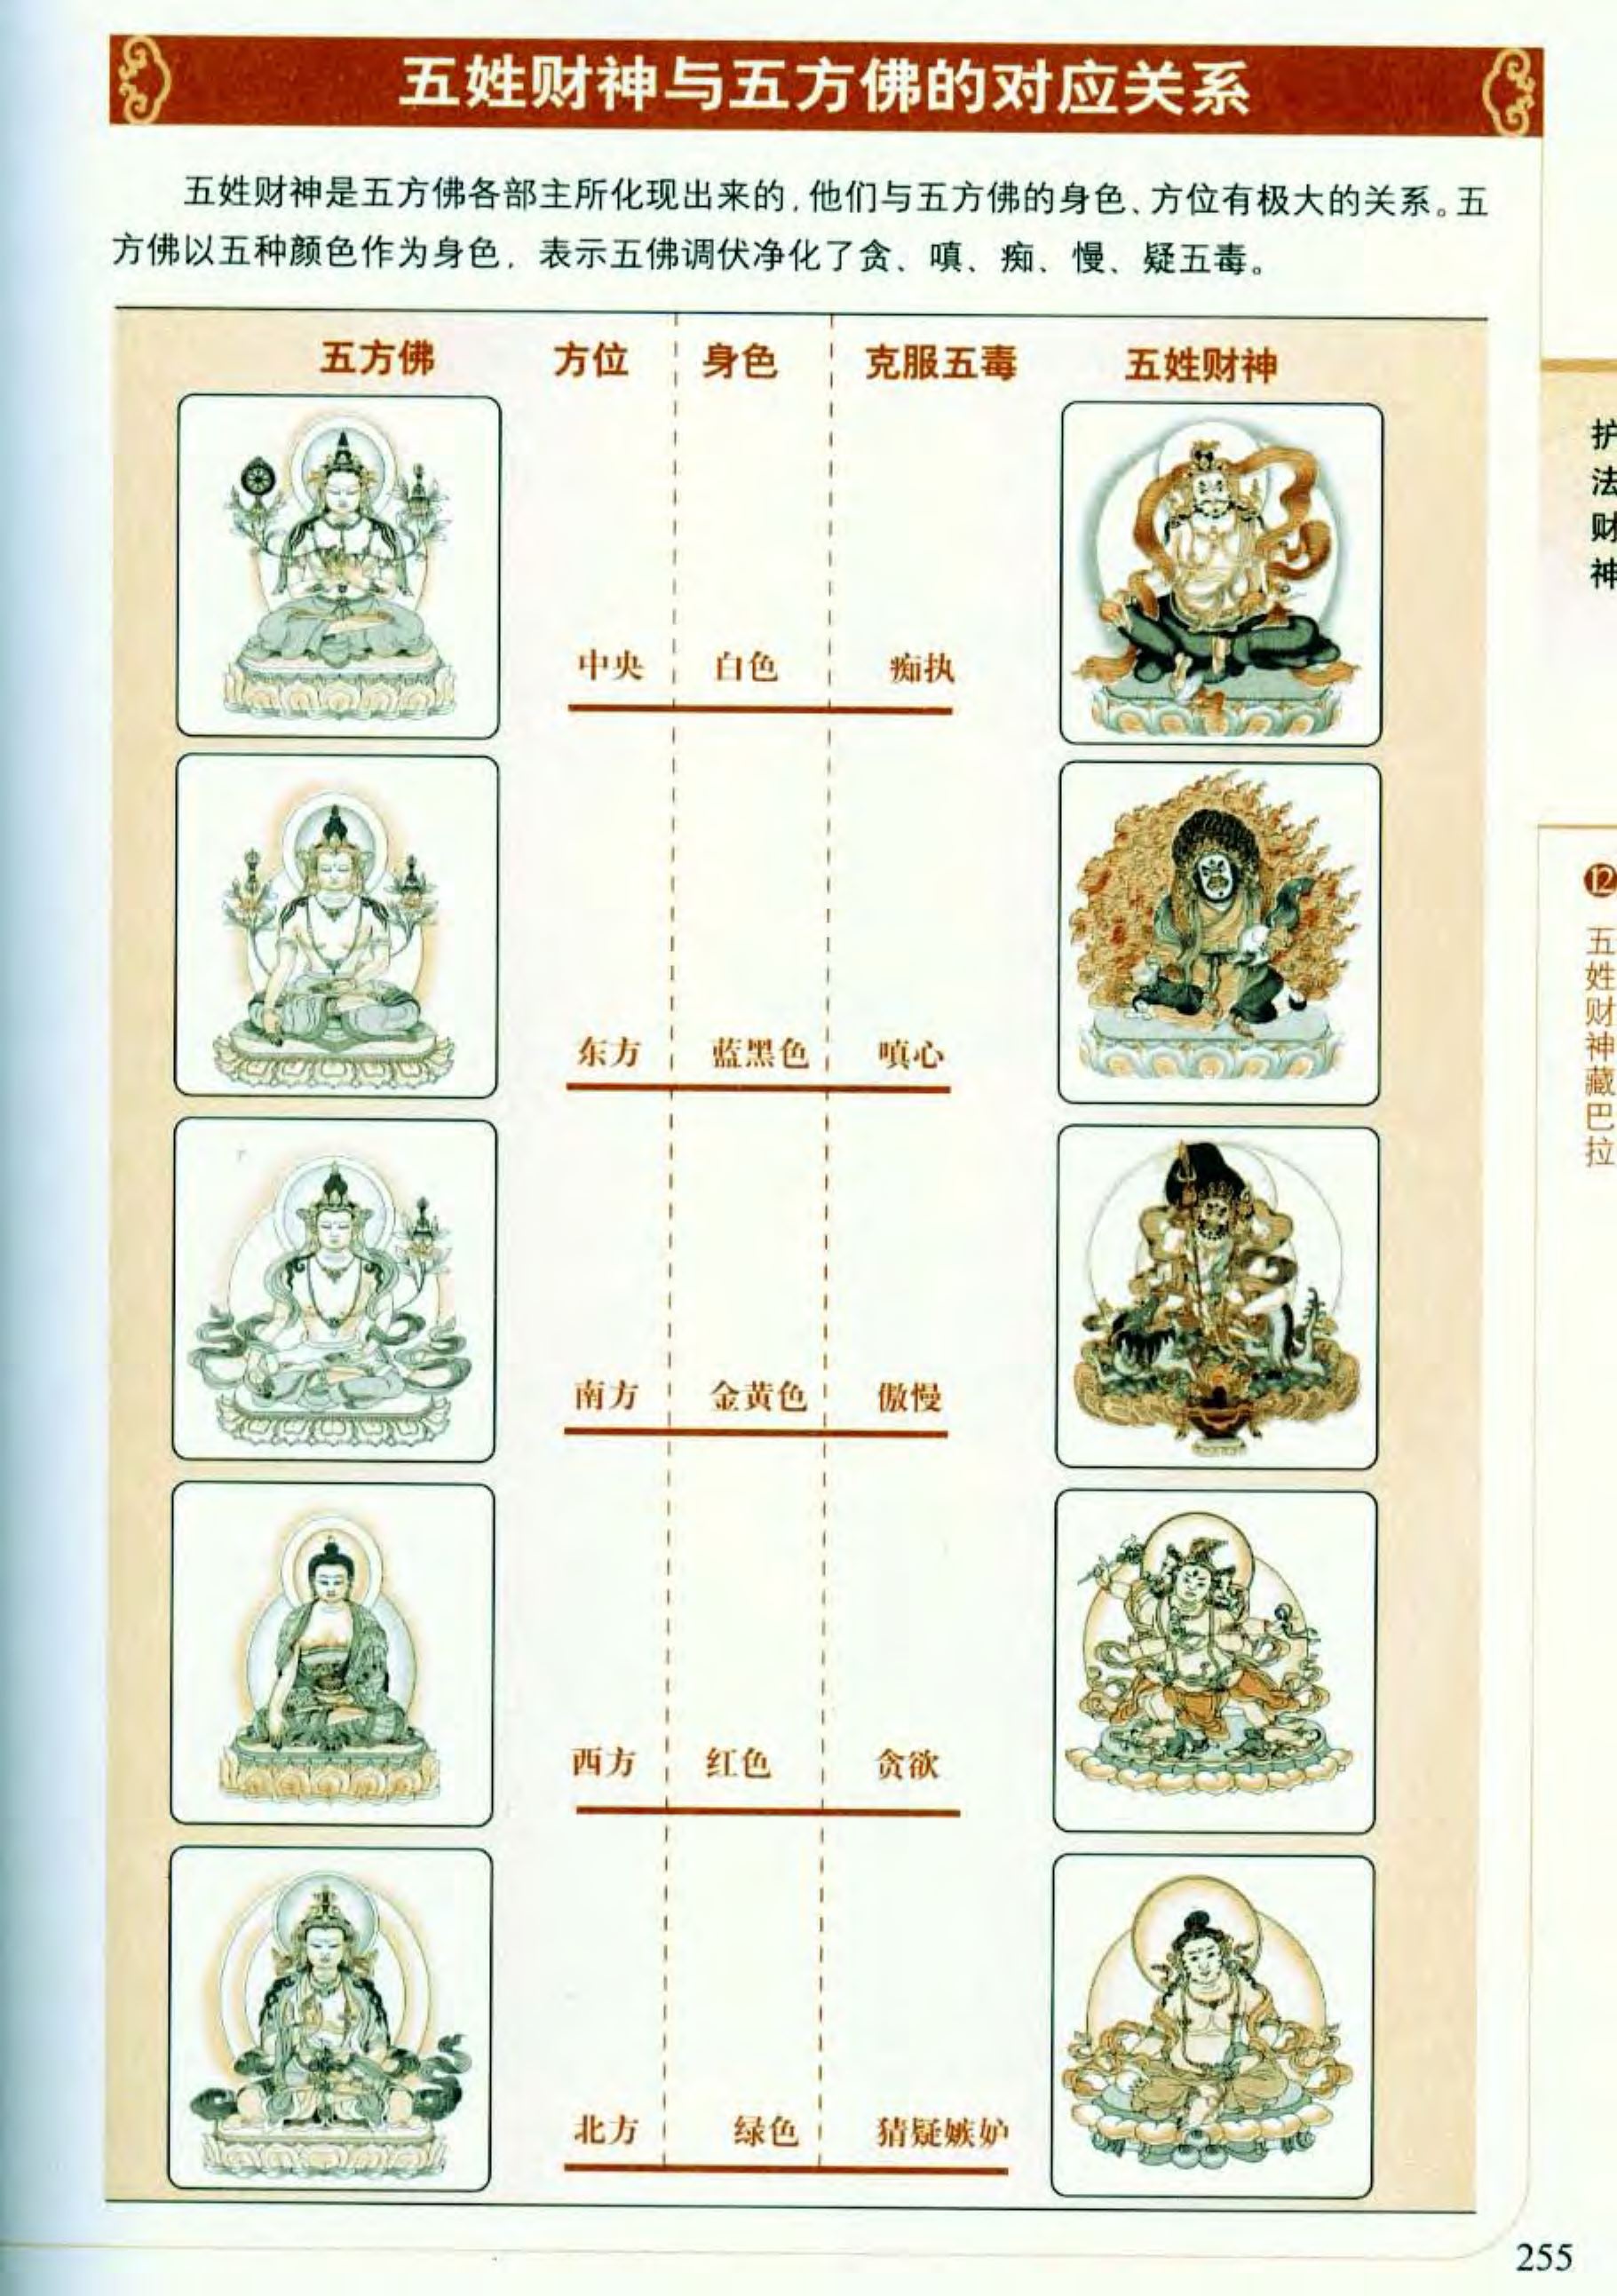 五姓财神与五方佛的对应关系
五姓财神是五方佛各部主所化现出来的，他们与五方佛的身色、方位有极大的关系。五
方佛以五种颜色作为身色，表示五佛调伏净化了贪、嗔、痴、慢、疑五毒。
五方佛 方位 身色 克服五毒 五姓财神
中央 白色 痴执
东方 蓝黑色 嗔心
南方 金黄色 傲慢
西方 红色 贪欲
北方 绿色 猜疑嫉妒
护法财神
12 五姓财神藏巴拉
255